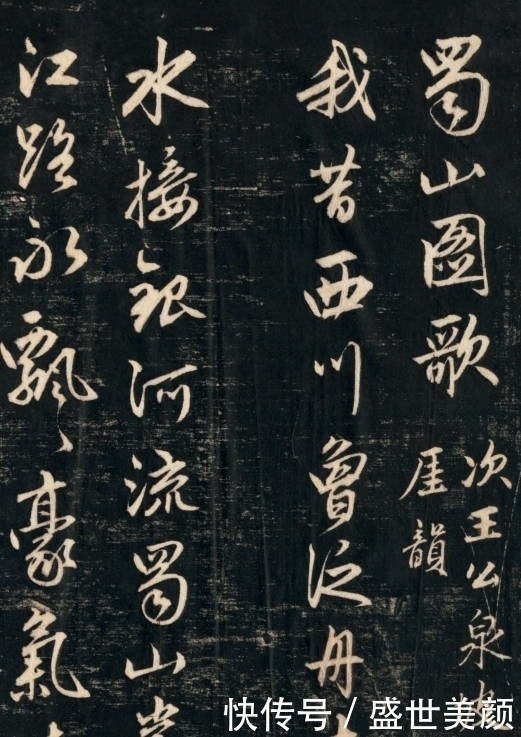 蜀山圖歌
次王公泉
厓韻
我昔西川曾泛舟
水接銀河流蜀山
江路永飄〻豪氣
快传号/盛世美颜